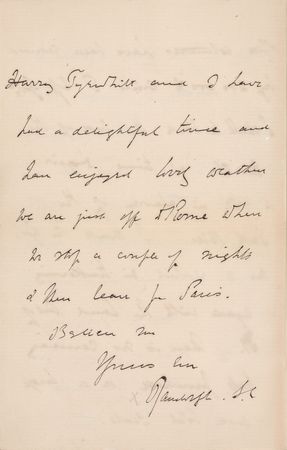 Harry Tyrwhitt and I have
had a delightful time and
have enjoyed lovely weather
we are just off to Rome where
we stop a couple of nights
& then leave for Paris.
Believe me
Yours ever
Randolph. S. C